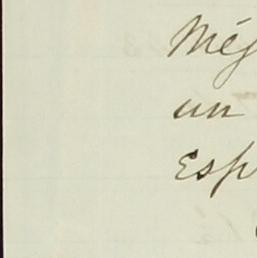 Még
un
Esp